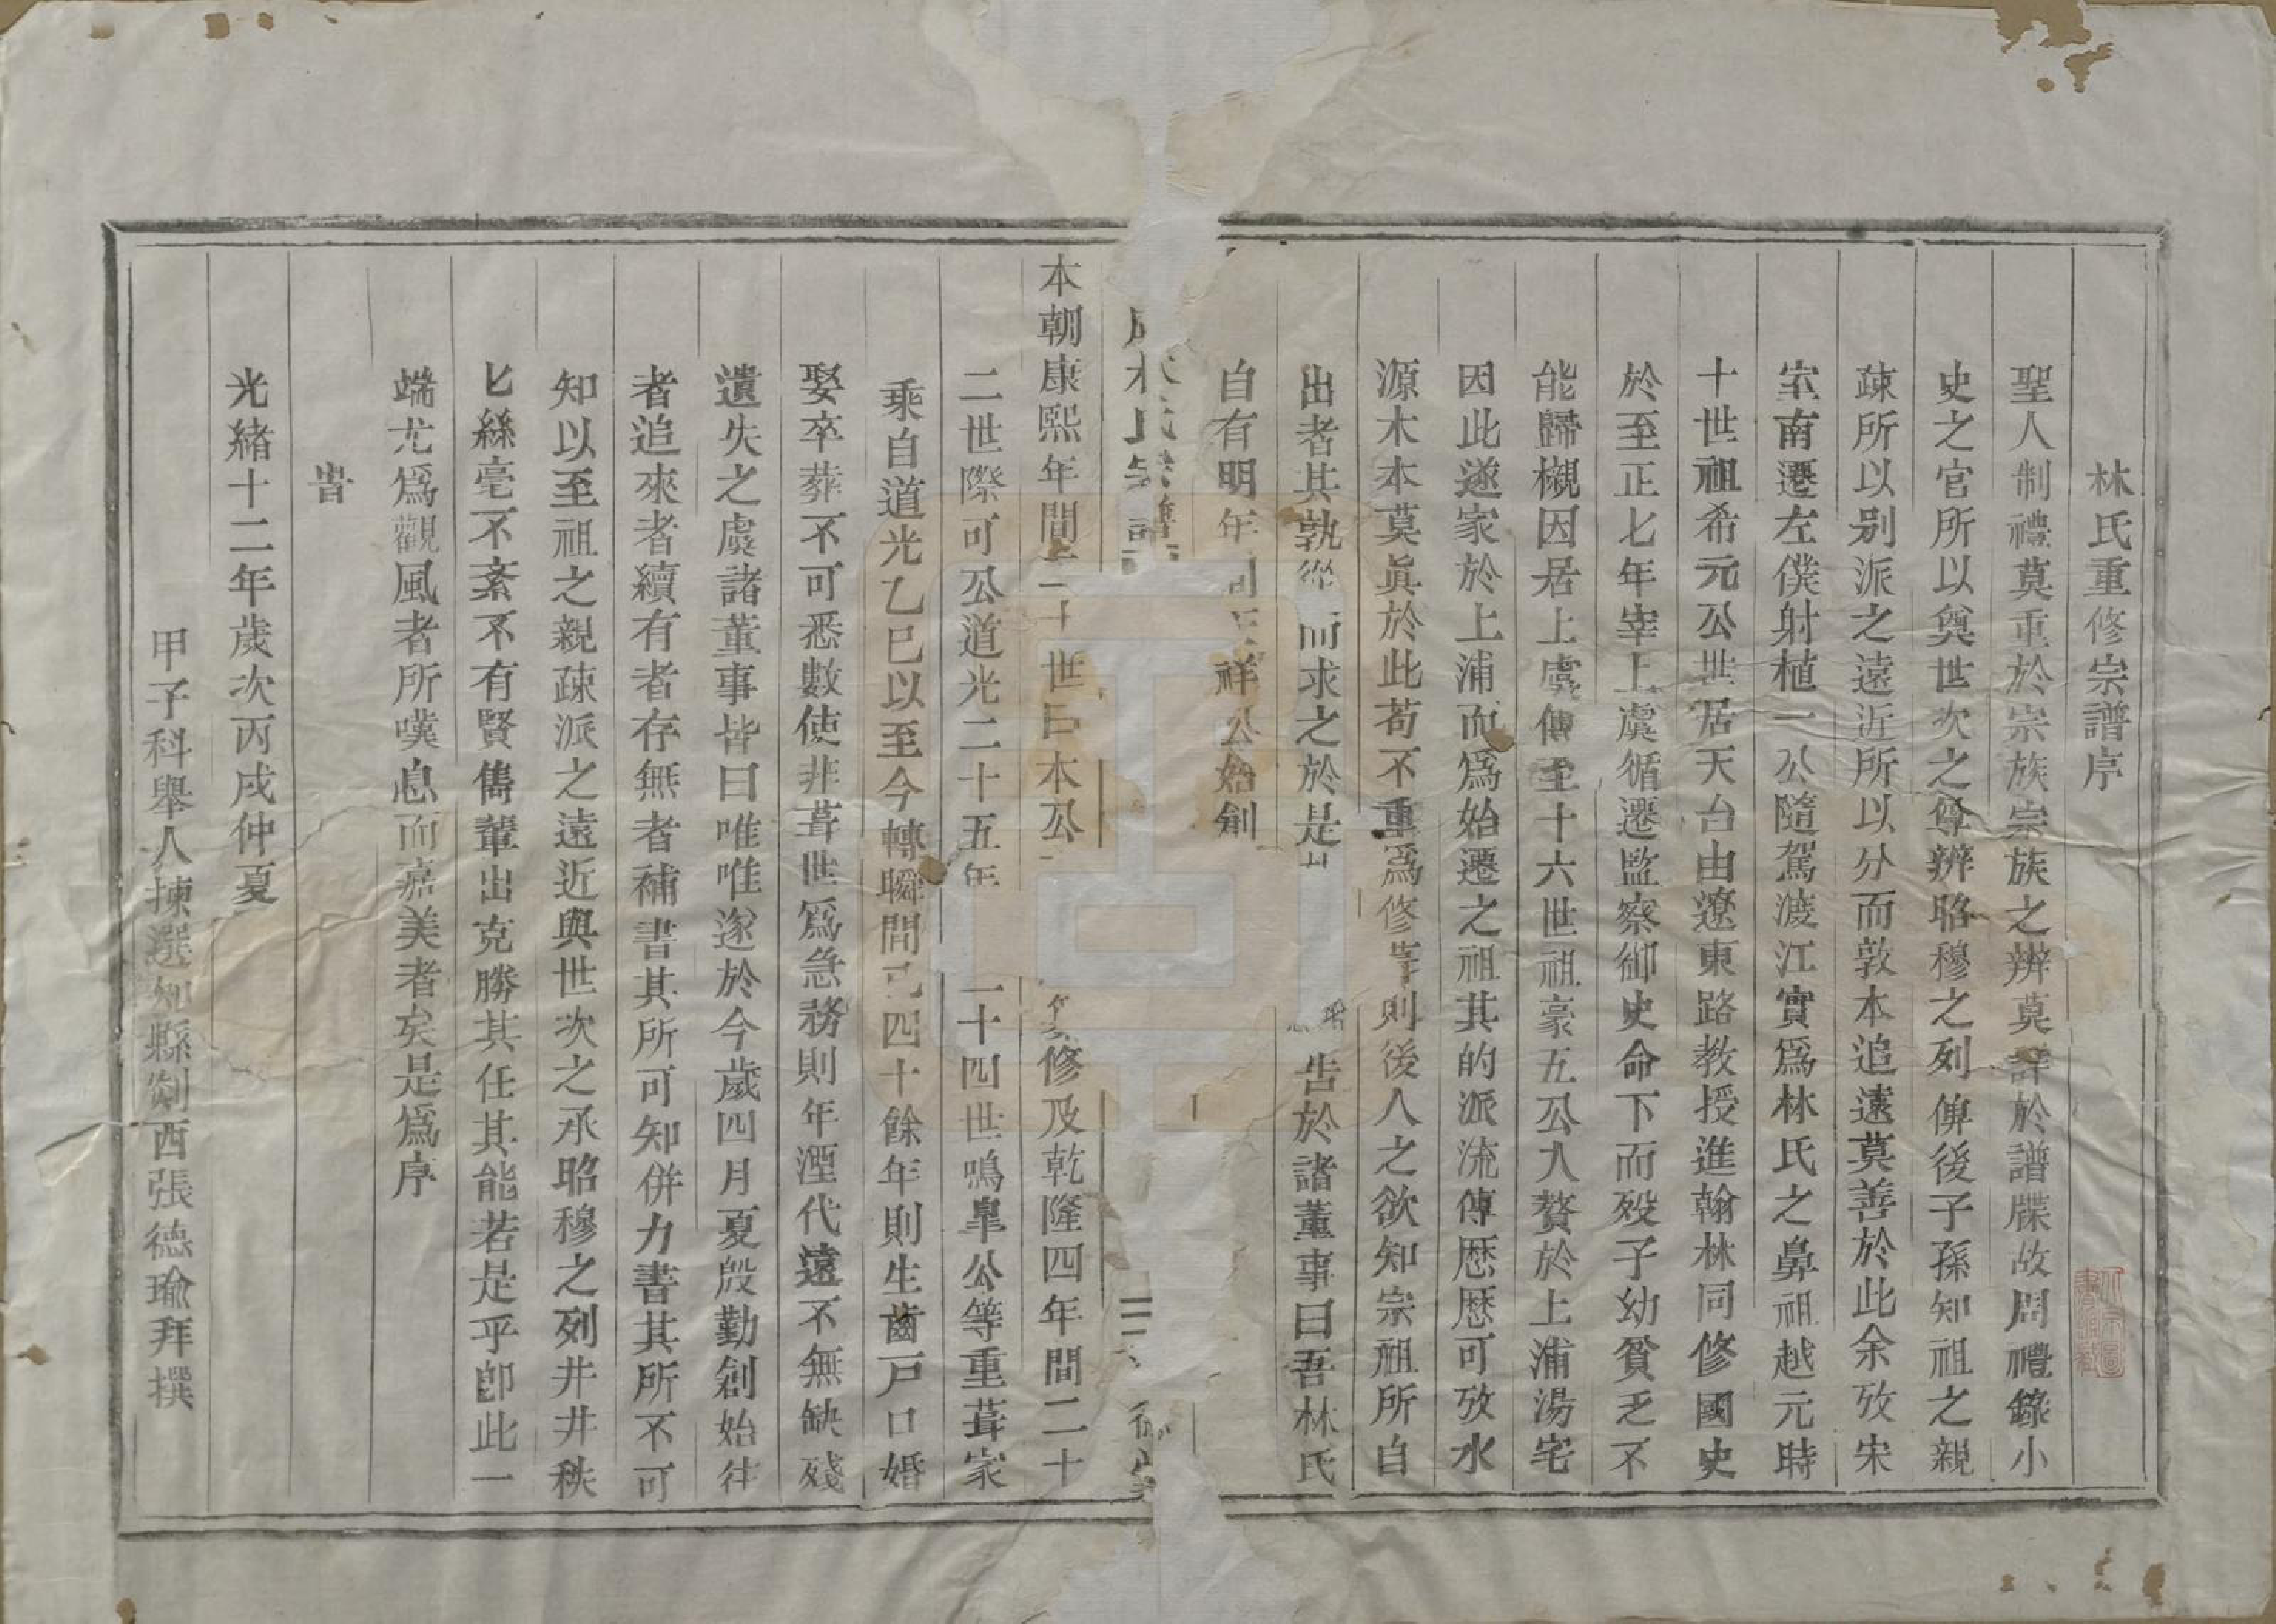 林氏重修宗譜序
聖人制禮莫重於宗族宗族之辨莫詳於譜牒故周禮錄小
史之官所以奠世次之尊辨昭穆之列俾後子孫知祖之親
疎所以别派之遠近所以分而敦本追遠莫善於此余攷宋
室南遷左僕射植一公隨駕渡江實爲林氏之鼻祖越元時
十世祖希元公世居天台由遼東路教授進翰林同修國史
於至正七年宰上虞循遷監察御史命下而歿子幼貧乏不
能歸櫬因居上虞傳至十六世祖豪五公入贅於上浦湯宅
因此遂家於上浦而爲始遷之祖其的派流傳歷歷可攷水
源木本莫眞於此苟不重爲修葺則後人之欲知宗祖所自
出者其孰從而求之於是 告於諸董事曰吾林氏
自有明年間 祥公始創
氏宗譜
本朝康熙年間二十世巨木公 修及乾隆四年間二十
二世際可公道光二十五年 二十四世鳴臯公等重葺家
乘自道光乙巳以至今轉瞬間已四十餘年則生齒戸口婚
娶卒葬不可悉數使非葺世爲急務則年湮代遠不無缺殘
遺失之虞諸董事皆曰唯唯遂於今歲四月夏殷勤創始往
者追來者續有者存無者補書其所可知併力書其所不可
知以至祖之親疎派之遠近與世次之承昭穆之列井井秩
匕絲毫不紊不有賢雋輩出克勝其任其能若是乎卽此一
端尤爲觀風者所嘆息而嘉美者矣是爲序
旹
光緒十二年歲次丙戌仲夏
甲子科舉人揀選知縣剡西張德瑜拜撰